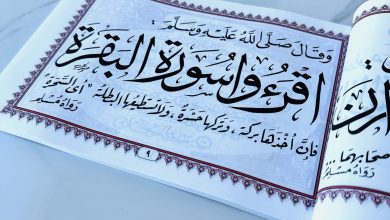 وَقَالَ صَلَّى اللهُ عَلَيْهِ وَسَلَّمَ:
اقْرَءُوا سُورَةَ الْبَقَرَةِ
فَإِنَّ أَخْذَهَا بَرَكَةٌ، وَتَرْكَهَا حَسْرَةٌ، وَلَا تَسْتَطِيعُهَا الْبَطَلَةُ "أي السَّحَرَةُ"
رَوَاهُ مُسْلِمٌ
٩
رَوَاهُ مُسْلِمٌ